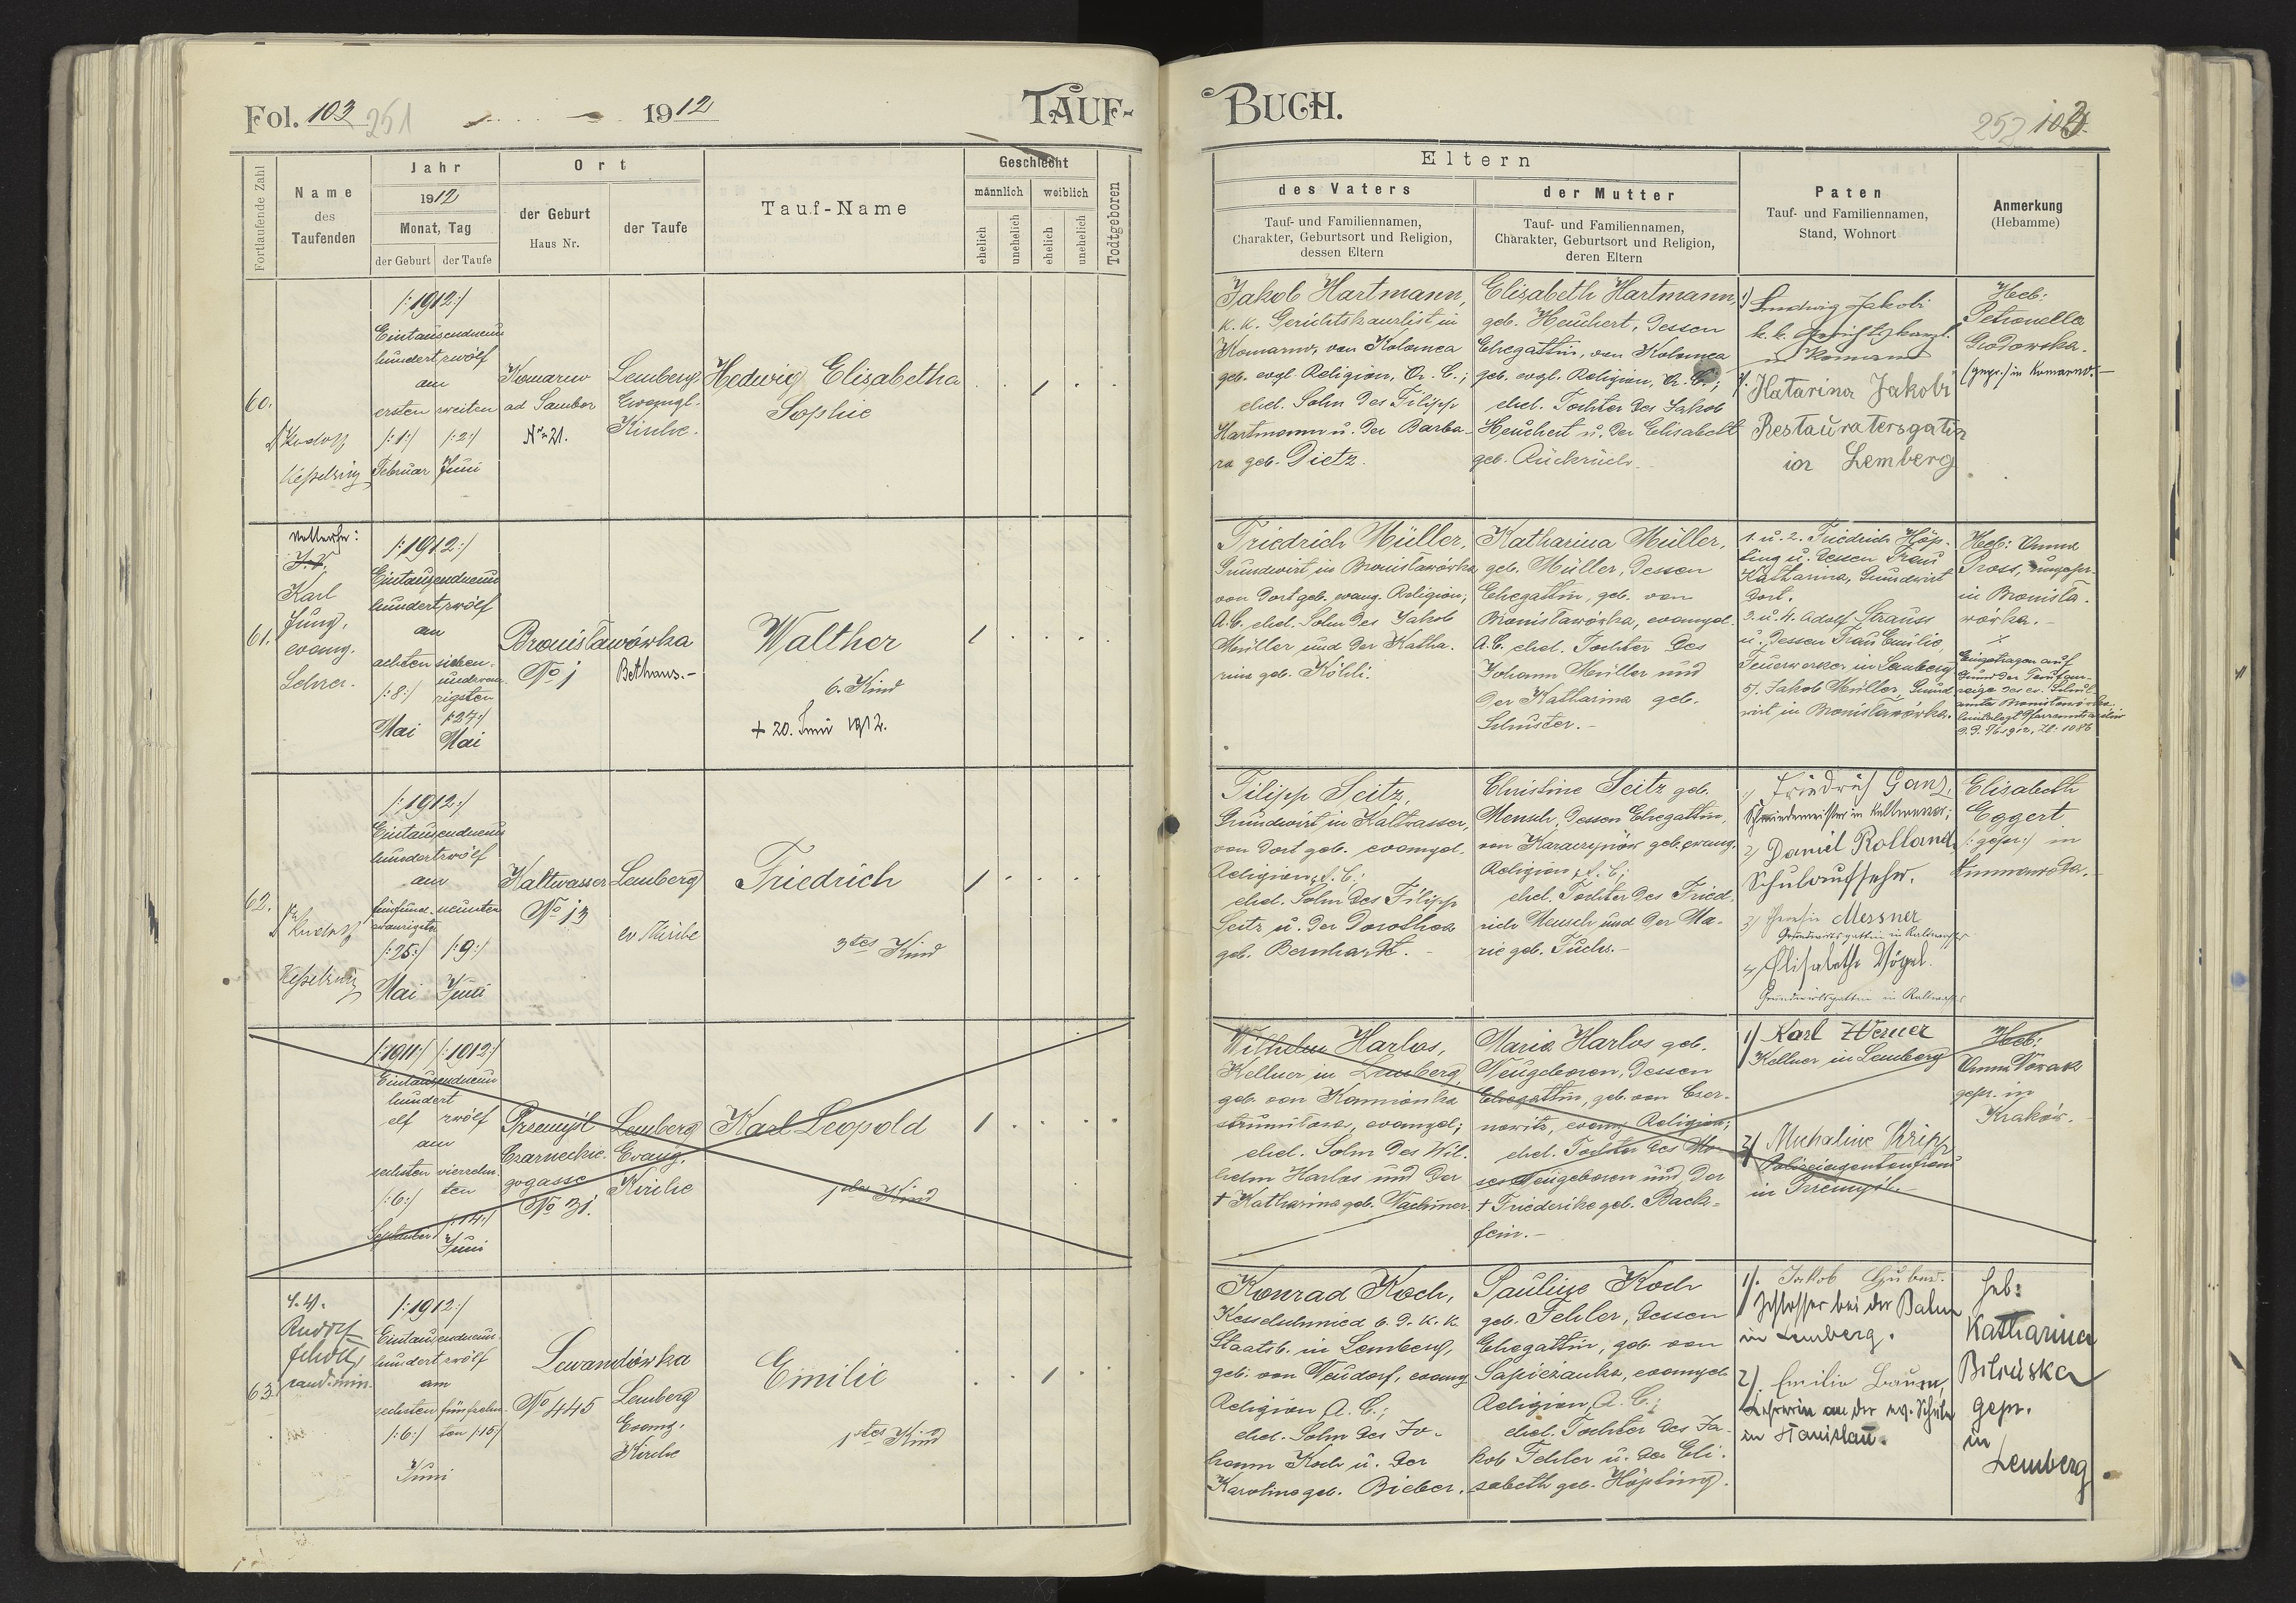 Fol. 103 251
1912
TAUF-
Fortlaufende Zahl
Name
des
Taufenden
Jahr
1912
Monat, Tag
der Geburt
der Taufe
Ort
der Geburt
Haus Nr.
der Taufe
Tauf-Name
Geschlecht
männlich
weiblich
ehelich
unehelich
ehelich
unehelich
Todtgeboren
60.
Kesselring
/:1912:/
Eintausendneun
hundertzwölf
am
ersten zweiten
/:1:/ /:2:/
Februar Juni
Komarno
ad Sambor
Nr. 21.
Lemberg
Evangl.
Kirche.
Hedwig Elisabetha
Sophie
61.
Karl
Jung,
evang.
Lehrer.
/:1912:/
Eintausendneun
hundertzwölf
am
achten sieben-
undzwan-
zigsten
/:8:/ /:27:/
Mai Mai
Bronisławówka
No 1
Bethaus.-
Walther
6. Kind
+ 20. Juni 1912.
62.
Rudolf
Kesselring
/:1912:/
Eintausendneun
hundertzwölf
am
fünfund- neunten
zwanzigsten
/:25:/ /:9:/
Mai Juni
Kaltwasser
No 13
Lemberg
ev Kirche
Friedrich
3tes Kind
/:1911:/ /:1912:/
Eintausendneun
hundert
elf zwölf
am
sechsten vierzehn-
ten
/:6:/ /:14:/
September Juni
Przemyśl
Czarneckie-
gogasse
No 31.
Lemberg
Evang.
Kirche
Karl Leopold
1tes Kind
63.
Rudolf
cand. min.
/:1912:/
Eintausendneun-
hundertzwölf
am
sechsten fünfzehn-
/:6:/ ten /:15:/
Juni
Lewandówka
No 445
Lemberg
Evang.
Kirche
Emilie
1tes Kind
BUCH.
252
Eltern
des Vaters
Tauf- und Familiennamen,
Charakter, Geburtsort und Religion,
dessen Eltern
der Mutter
Tauf- und Familiennamen,
Charakter, Geburtsort und Religion,
deren Eltern
Paten
Tauf- und Familiennamen,
Stand, Wohnort
Anmerkung
(Hebamme)
Jakob Hartmann,
k. k. Gerichtskanzlist in
Komarno, von Kolomea
geb. evgl. Religion, A. C.;
ehel. Sohn des Filipp
Hartmann u. der Barba-
ra geb. Dietz.
Elisabeth Hartmann,
geb. Heuchert, dessen
Ehegattin, von Kolomea
geb. evgl. Religion, A. C.;
ehel. Tochter des Jakob
Heuchert u. der Elisabeth
geb. Rückrich.
1) Ludwig Jakobi
k. k. Gerichtskanzl.
in Komarno
2. Katarina Jakobi
Restauratersgatin
in Lemberg
Heb:
Petronella
Grodowska.
(gepr.) in Komarno.-
Friedrich Müller,
Grundwirt in Bronisławówka
von dort geb. evang. Religion;
A.C. ehel. Sohn des Jakob
Müller und der Katha-
rina geb. Köhli.
Katharina Müller,
geb. Müller, dessen
Ehegattin, geb. von
Bronisławówka, evangel.
A.C. ehel. Tochter des
Johann Müller und
der Katharina geb.
Schuster.-
1. u. 2. Friedrich Höp-
fing u. dessen Frau
Katharina, Grundwirt
dort.
3. u. 4. Adolf Strauss
u. dessen Frau Emilie,
Feuerwerker in Lemberg
5. Jakob Müller, Grund
wirt in Bronisławówka.
Heb: Anna
Pross, ungepr.
in Bronisła-
wówka.-
Eingetragen auf
Filipp Seitz,
Grundwirt in Kaltwasser,
von dort geb. evangel.
Religion, A. C.;
ehel. Sohn des Filipp
Seitz u. der Dorothea
geb. Bernhardt.
Christine Seitz geb.
Mensch, dessen Ehegattin,
von Karaczynów geb. evang.
Religion A. C.;
ehel. Tochter des Fried-
rich Mensch und der Ma-
rie geb. Fuchs.-
1) Friedrich Ganz,
Schmiedemeister in Kaltwasser;
2) Daniel Rolland
Schulaufseher.
3) Messner
Grundwirtsgattin in Kaltwasser
4) Elisabethe Vögel.
Grundwirtsgattin in Kaltwasser
Elisabeth
Eggert
/:gepr:/ in
Zimnawóda.
Wilhelm Harlos,
Kellner in Lemberg,
geb. von Kamionka
strumiłowa, evangel;
ehel. Sohn des Wil-
helm Harlos und der
† Katharina geb. Wachmer
Maria Harlos geb.
Neugeboren, dessen
Ehegattin, geb. von Czer-
nowitz, evang. Religion;
ehel. Tochter des Mo-
ses Neugeboren und der
† Friederike geb. Backs-
fein.-
1) Karl Werner
Kellner in Lemberg
2) Michaline Kripp
Polizeiagentenfrau
in Przemyśl.-
Heb:
Anna Nowak
gepr. in
Kraków.-
Konrad Koch,
Kesselschmied b. d. k. k
Staatsb. in Lemberg,
geb. von Neudorf, evang
Religion A. C.;
ehel. Sohn des Jo-
hann Koch u. der
Karolina geb. Bieber.
Pauline Koch
geb. Fehler, dessen
Ehegattin, geb. von
Sapieżanka, evangel.
Religion, A. C.;
ehel. Tochter des Ja-
kob Fehler u. der Eli-
sabeth geb. Höpfing.
1). Jakob Huber.
Schlosser bei der Bahn
in Lemberg.
2). Emilie Baum,
Lehrerin an der ev. Schule
in Stanislau.
Heb:
Katharina
Biluska
gepr.
in
Lemberg